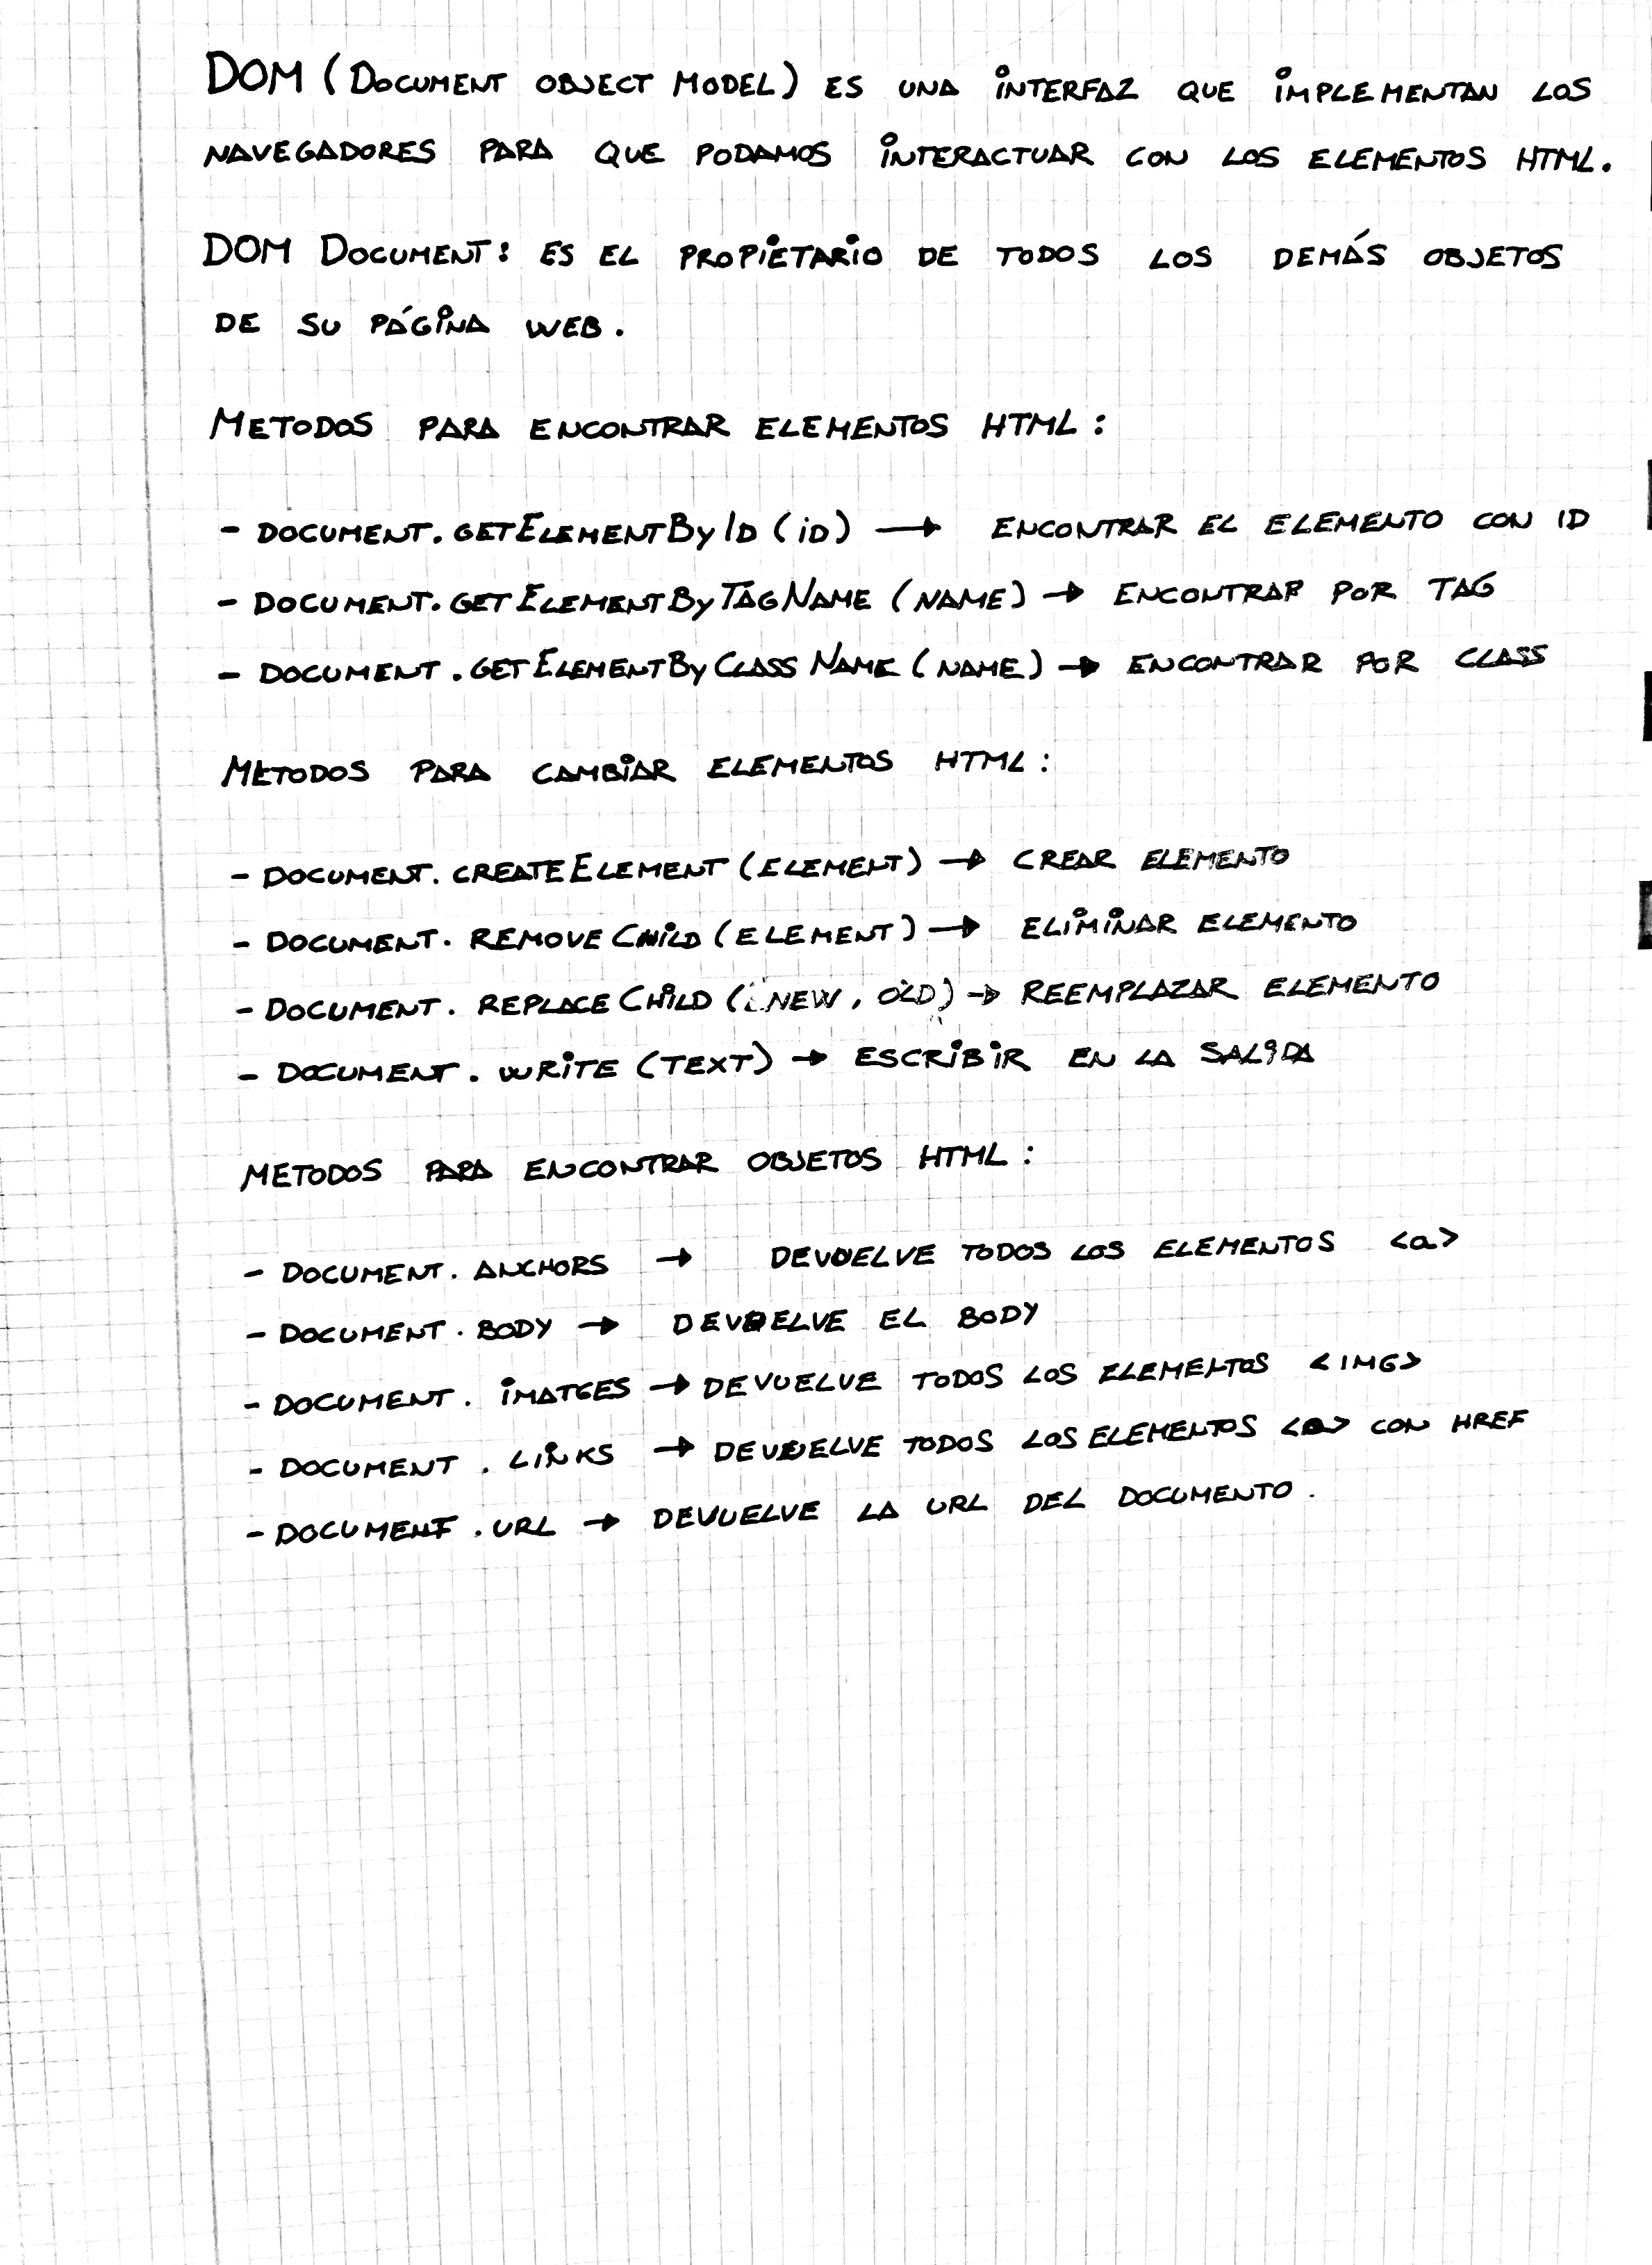 DOM (DOCUMENT OBJECT MODEL) ES UNA INTERFAZ QUE IMPLEMENTAN LOS
NAVEGADORES PARA QUE PODAMOS INTERACTUAR CON LOS ELEMENTOS HTML.
DOM DOCUMENT: ES EL PROPIETARIO DE TODOS LOS DEMÁS OBJETOS
DE SU PÁGINA WEB.
METODOS PARA ENCONTRAR ELEMENTOS HTML:
- DOCUMENT.GETELEMENTBYID (ID) → ENCONTRAR EL ELEMENTO CON ID
- DOCUMENT.GETELEMENTBYTAGNAME (NAME) → ENCONTRAR POR TAG
- DOCUMENT.GETELEMENTBYCLASSNAME (NAME) → ENCONTRAR POR CLASS
METODOS PARA CAMBIAR ELEMENTOS HTML:
- DOCUMENT.CREATEELEMENT (ELEMENT) → CREAR ELEMENTO
- DOCUMENT.REMOVECHILD (ELEMENT) → ELIMINAR ELEMENTO
- DOCUMENT.REPLACECHILD (NEW, OLD) → REEMPLAZAR ELEMENTO
- DOCUMENT.WRITE (TEXT) → ESCRIBIR EN LA SALIDA
METODOS PARA ENCONTRAR OBJETOS HTML:
- DOCUMENT.ANCHORS → DEVUELVE TODOS LOS ELEMENTOS <a>
- DOCUMENT.BODY → DEVUELVE EL BODY
- DOCUMENT.IMATGES → DEVUELVE TODOS LOS ELEMENTOS <IMG>
- DOCUMENT.LINKS → DEVUELVE TODOS LOS ELEMENTOS <a> CON HREF
- DOCUMENT.URL → DEVUELVE LA URL DEL DOCUMENTO.